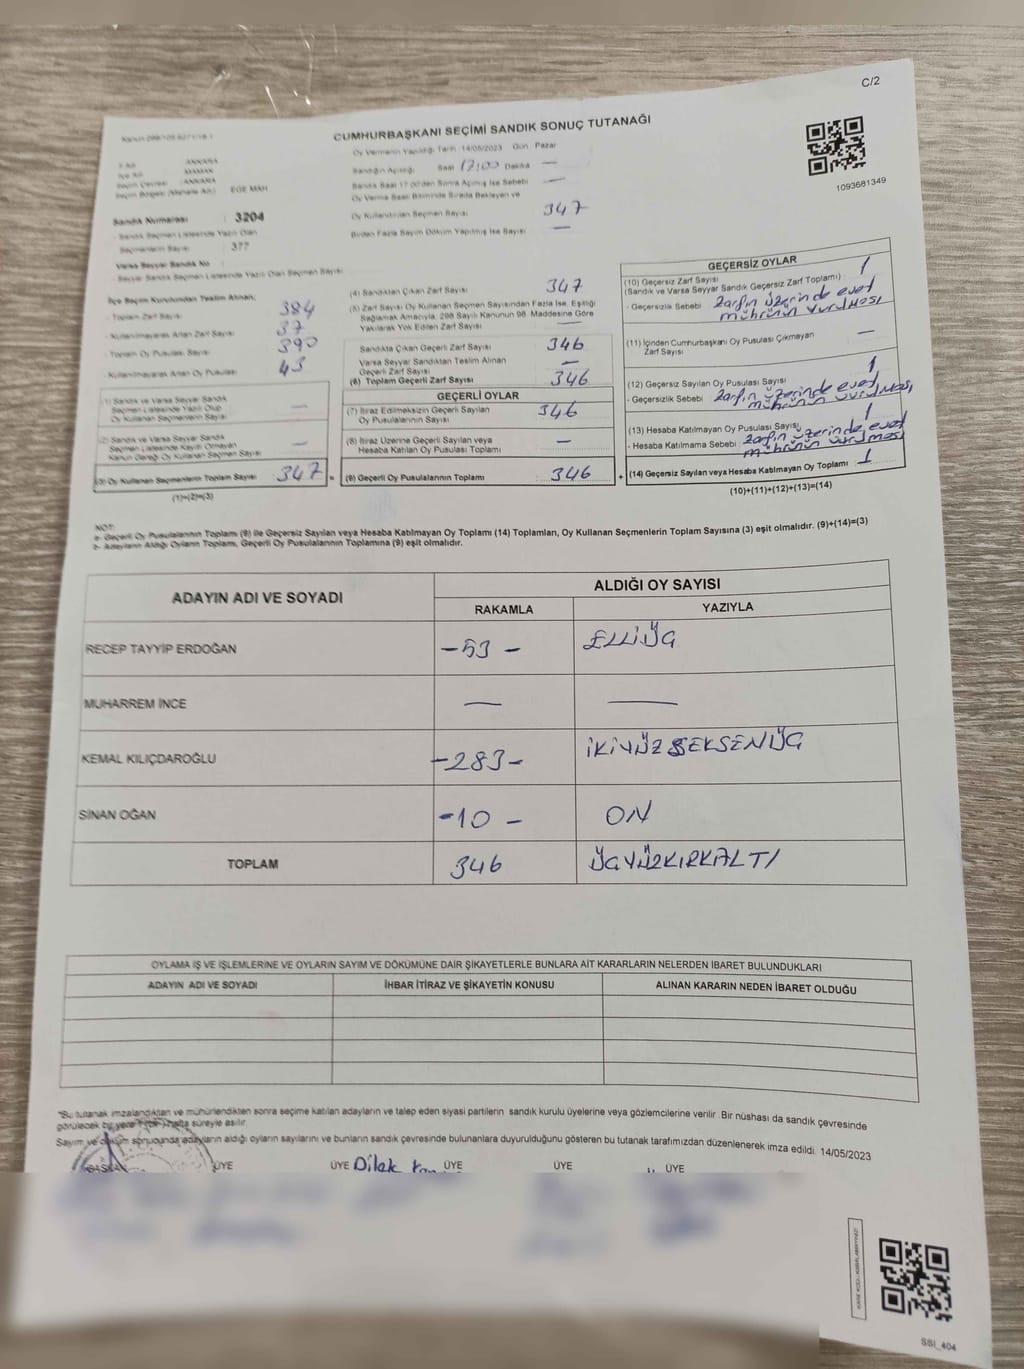 C/2
CUMHURBAŞKANI SEÇİMİ SANDIK SONUÇ TUTANAĞI
1093681349
Oy Vermenin Yapıldığı Tarih : 14/05/2023 Gün : Pazar
İl Adı : ANKARA
İlçe Adı : MAMAK
Seçim Çevresi : ANKARA
Seçim Bölgesi (Mahalle Adı) : EGE MAH
Sandık Numarası : 3204
- Sandık Seçmen Listesinde Yazılı Olan
Seçmenlerin Sayısı : 377
Varsa Seyyar Sandık No :
- Seyyar Sandık Seçmen Listesinde Yazılı Olan Seçmen Sayısı
Sandığın Açıldığı Saat 17:00 Dakika —
Sandık Saat 17.00'den Sonra Açılmış İse Sebebi —
Oy Verme Saati Bitiminde Sırada Bekleyen ve
Oy Kullandırılan Seçmen Sayısı 347
Birden Fazla Sayım Döküm Yapılmış İse Sayısı —
İlçe Seçim Kurulundan Teslim Alınan;
- Toplam Zarf Sayısı 384
- Kullanılmayarak Artan Zarf Sayısı 37
- Toplam Oy Pusulası Sayısı 390
- Kullanılmayarak Artan Oy Pusulası 43
(1) Sandık ve Varsa Seyyar Sandık
Seçmen Listesinde Yazılı Olup
Oy Kullanan Seçmenlerin Sayısı —
(2) Sandık ve Varsa Seyyar Sandık
Seçmen Listesinde Kayıtlı Olmayan
Kanun Gereği Oy Kullanan Seçmen Sayısı —
(3) Oy Kullanan Seçmenlerin Toplam Sayısı 347 =
(1)+(2)=(3)
(4) Sandıktan Çıkan Zarf Sayısı 347
(5) Zarf Sayısı Oy Kullanan Seçmen Sayısından Fazla İse, Eşitliği
Sağlamak Amacıyla, 298 Sayılı Kanunun 98. Maddesine Göre
Yakılarak Yok Edilen Zarf Sayısı —
Sandıkta Çıkan Geçerli Zarf Sayısı 346
Varsa Seyyar Sandıktan Teslim Alınan
Geçerli Zarf Sayısı —
(6) Toplam Geçerli Zarf Sayısı 346
GEÇERLİ OYLAR
(7) İtiraz Edilmeksizin Geçerli Sayılan
Oy Pusulalarının Sayısı 346
(8) İtiraz Üzerine Geçerli Sayılan veya
Hesaba Katılan Oy Pusulası Toplamı —
(9) Geçerli Oy Pusulalarının Toplamı 346 +
GEÇERSİZ OYLAR
(10) Geçersiz Zarf Sayısı 1
(Sandık ve Varsa Seyyar Sandık Geçersiz Zarf Toplamı)
- Geçersizlik Sebebi : Zarfın üzerinde evet
mührünün vurulması
(11) İçinden Cumhurbaşkanı Oy Pusulası Çıkmayan
Zarf Sayısı —
(12) Geçersiz Sayılan Oy Pusulası Sayısı 1
- Geçersizlik Sebebi : Zarfın üzerinde evet
mührünün vurulması
(13) Hesaba Katılmayan Oy Pusulası Sayısı 1
- Hesaba Katılmama Sebebi : Zarfın üzerinde evet
mührünün vurulması
(14) Geçersiz Sayılan veya Hesaba Katılmayan Oy Toplamı 1
(10)+(11)+(12)+(13)=(14)
NOT:
a- Geçerli Oy Pusulalarının Toplamı (9) ile Geçersiz Sayılan veya Hesaba Katılmayan Oy Toplamı (14) Toplamları, Oy Kullanan Seçmenlerin Toplam Sayısına (3) eşit olmalıdır. (9)+(14)=(3)
b- Adayların Aldığı Oyların Toplamı, Geçerli Oy Pusulalarının Toplamına (9) eşit olmalıdır.
ADAYIN ADI VE SOYADI
ALDIĞI OY SAYISI
RAKAMLA YAZIYLA
RECEP TAYYİP ERDOĞAN -53- ELLİÜÇ
MUHARREM İNCE — —
KEMAL KILIÇDAROĞLU -283- İKİYÜZSEKSENÜÇ
SİNAN OĞAN -10- ON
TOPLAM 346 ÜÇYÜZKIRKALTI
OYLAMA İŞ VE İŞLEMLERİNE VE OYLARIN SAYIM VE DÖKÜMÜNE DAİR ŞİKAYETLERLE BUNLARA AİT KARARLARIN NELERDEN İBARET BULUNDUKLARI
ADAYIN ADI VE SOYADI İHBAR İTİRAZ VE ŞİKAYETİN KONUSU ALINAN KARARIN NEDEN İBARET OLDUĞU
*Bu tutanak imzalandıktan ve mühürlendikten sonra seçime katılan adayların ve talep eden siyasi partilerin sandık kurulu üyelerine veya gözlemcilerine verilir. Bir nüshası da sandık çevresinde
görülecek bir yere 1 bir hafta süreyle asılır.
Sayım ve döküm sonucunda adayların aldığı oyların sayılarını ve bunların sandık çevresinde bulunanlara duyurulduğunu gösteren bu tutanak tarafımızdan düzenlenerek imza edildi. 14/05/2023
BAŞKAN ÜYE ÜYE Dilek ÜYE ÜYE ÜYE
SSI_404